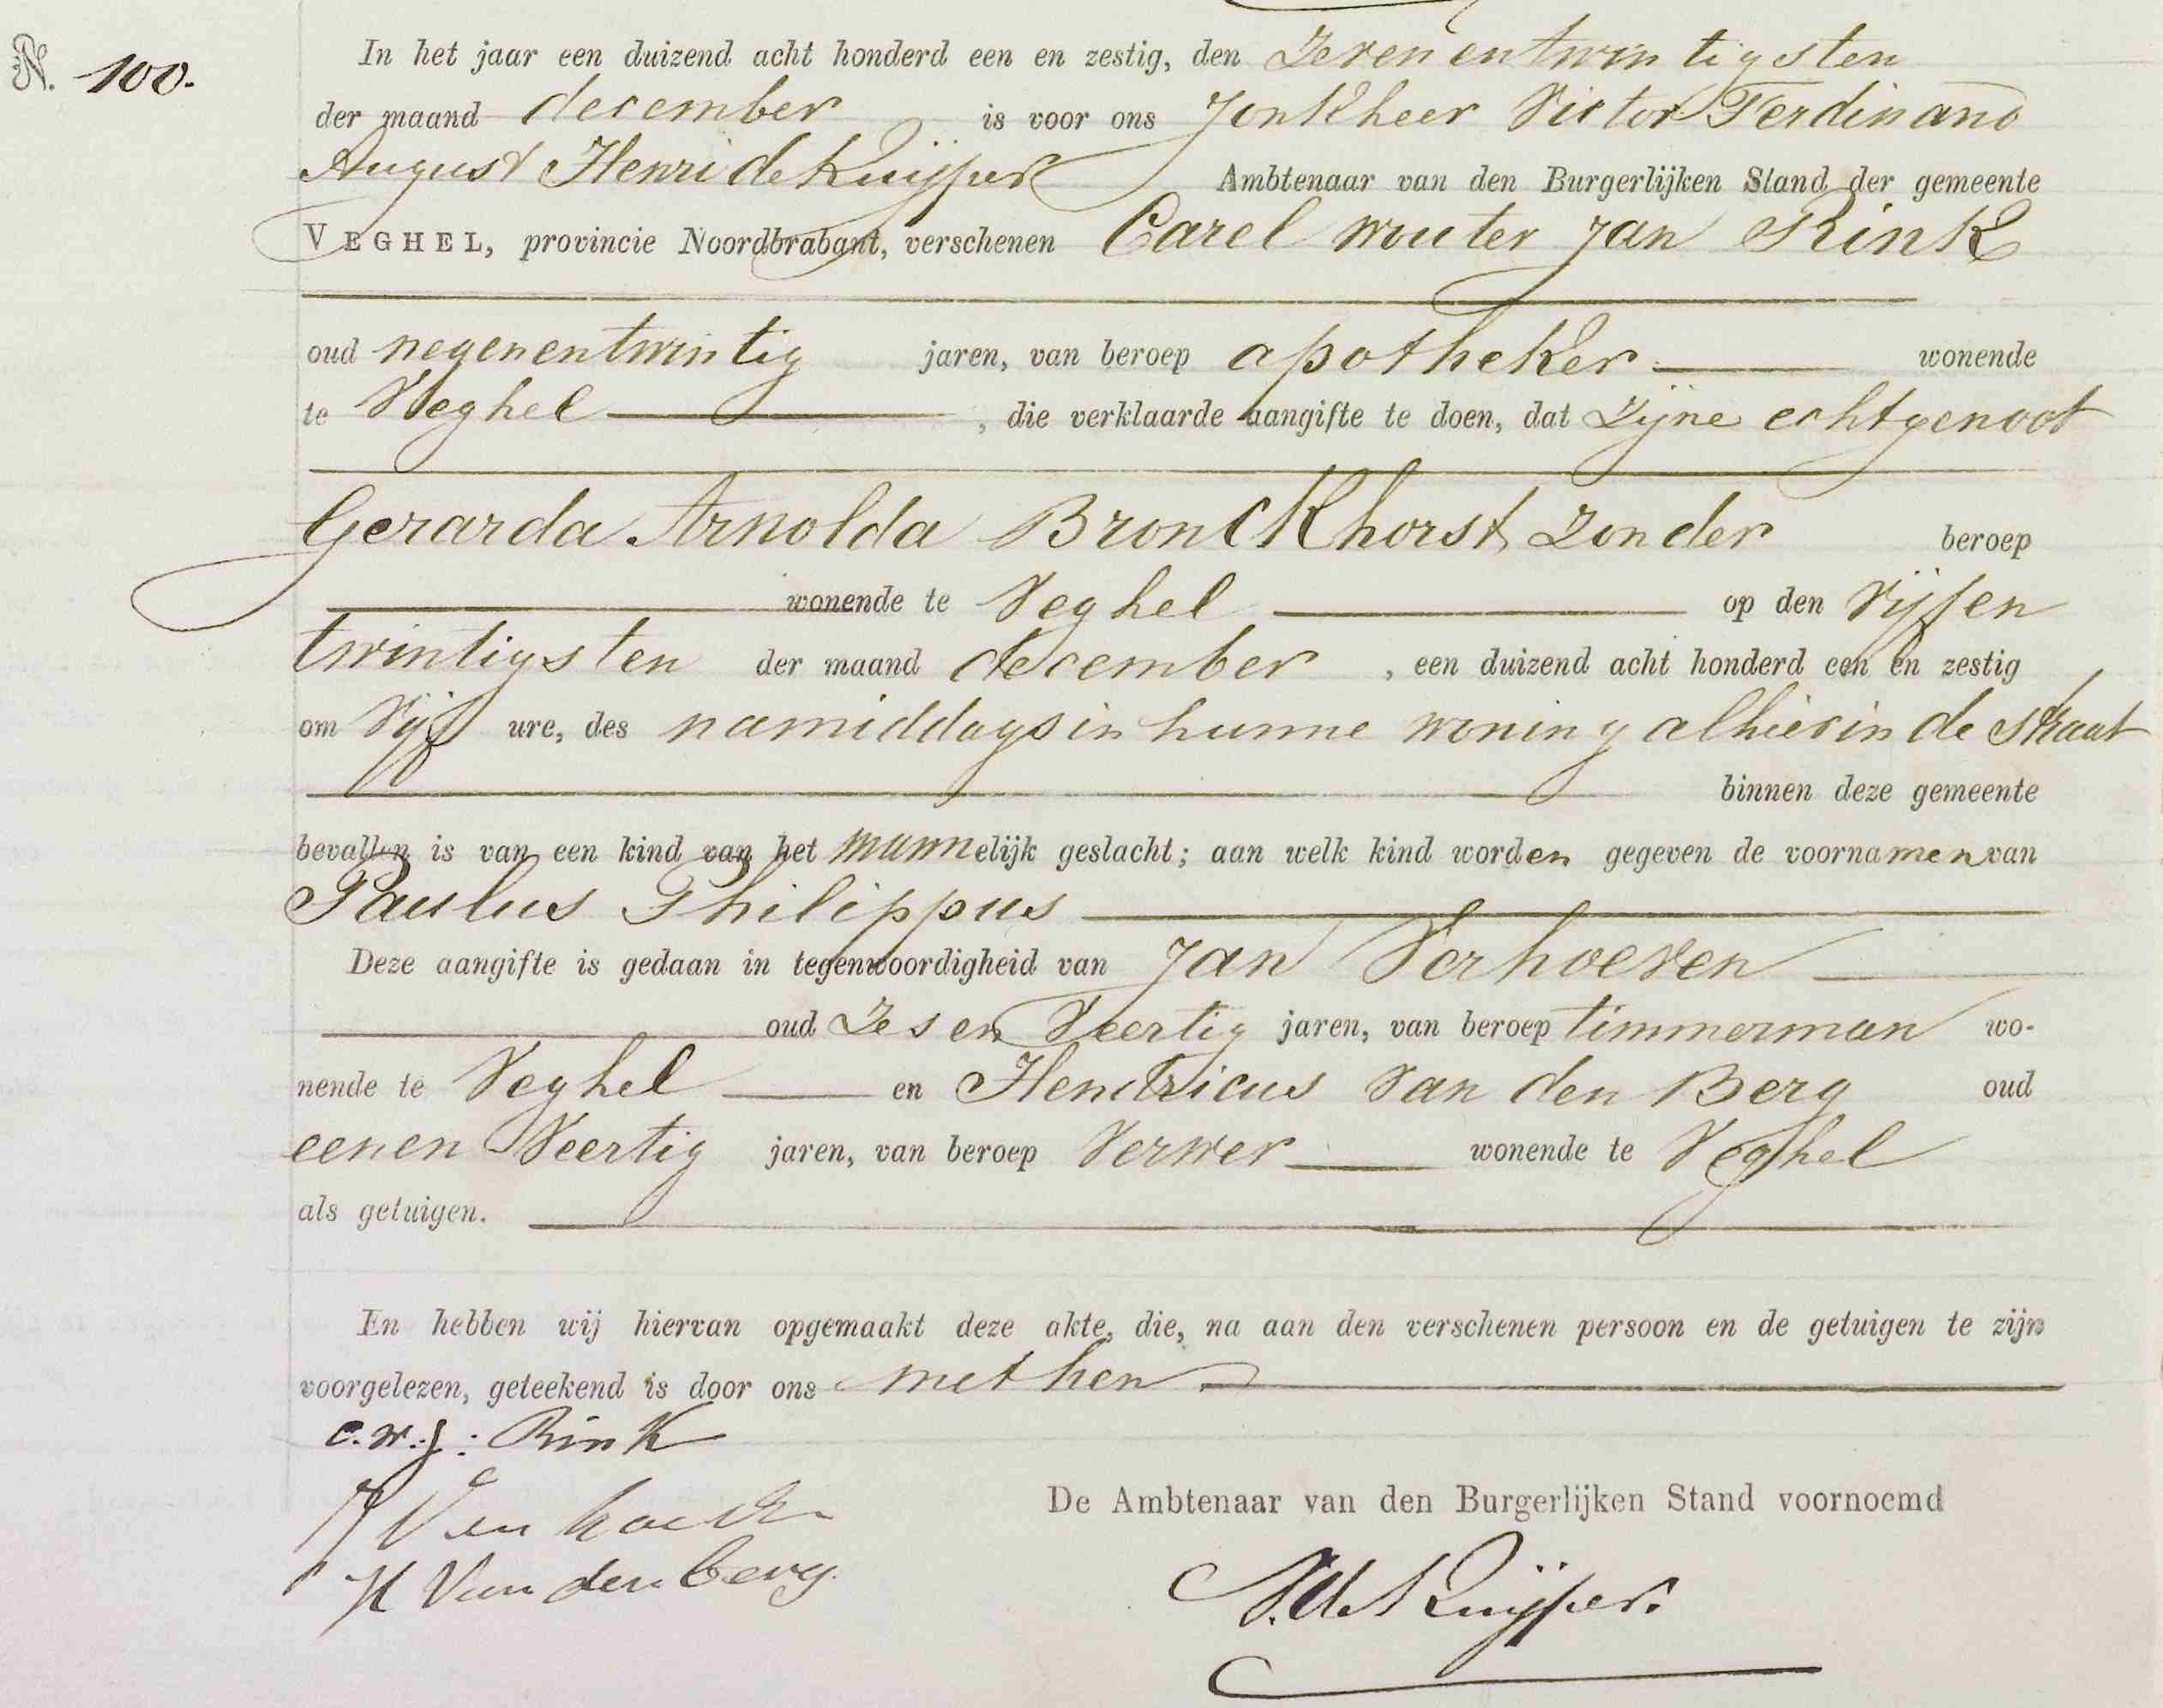 N. 100.
In het jaar een duizend acht honderd een en zestig, den Zeven en twintigsten
der maand december is voor ons Jonkheer Victor Ferdinand
August Henri de Kuijper Ambtenaar van den Burgerlijken Stand der gemeente
VEGHEL, provincie Noordbrabant, verschenen Carel Wouter Jan Rink
oud negenentwintig jaren, van beroep apotheker wonende
te Veghel, die verklaarde aangifte te doen, dat Zijne echtgenoot
Gerarda Arnolda Bronckhorst, Zonder beroep
wonende te Veghel op den Vijfen
twintigsten der maand december, een duizend acht honderd een en zestig
om Vijf ure, des namiddags in hunne woning alhier in de straat
binnen deze gemeente
bevallen is van een kind van het mannelijk geslacht; aan welk kind worden gegeven de voornamen van
Paulus Philippus
Deze aangifte is gedaan in tegenwoordigheid van Jan Verhoeven
oud Zes en Veertig jaren, van beroep timmerman wo-
nende te Veghel en Hendricus Van den Berg oud
eenen Veertig jaren, van beroep Verwer wonende te Veghel
als getuigen.
En hebben wij hiervan opgemaakt deze akte, die, na aan den verschenen persoon en de getuigen te zijn
voorgelezen, geteekend is door ons met hen
C. W. J: Rink
J Verhoeven
H Van den berg.
De Ambtenaar van den Burgerlijken Stand voornoemd
V. de Kuijper.